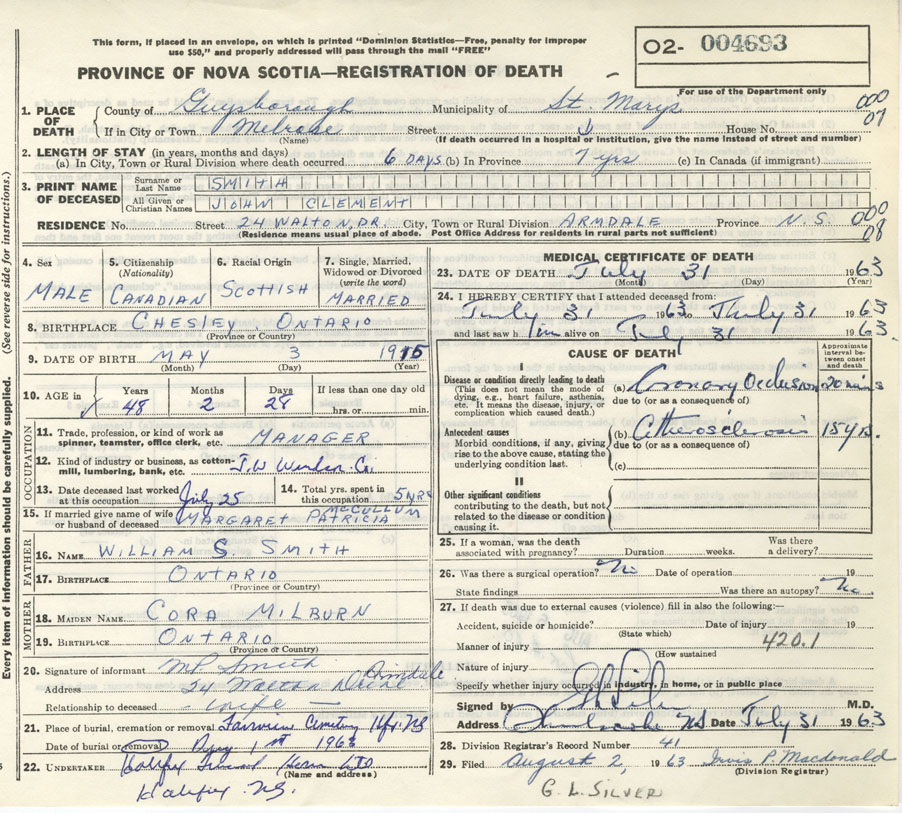 This form, if placed in an envelope, on which is printed "Dominion Statistics—Free, penalty for improper
use $50," and properly addressed will pass through the mail "FREE"
O2- 004693
PROVINCE OF NOVA SCOTIA—REGISTRATION OF DEATH
For use of the Department only
1. PLACE OF DEATH County of Guysborough Municipality of St. Marys 000 07
If in City or Town Melrose Street House No.
(Name) (If death occurred in a hospital or institution, give the name instead of street and number)
2. LENGTH OF STAY (in years, months and days)
(a) In City, Town or Rural Division where death occurred 6 DAYS (b) In Province 7 yrs (c) In Canada (if immigrant)
3. PRINT NAME OF DECEASED Surname or Last Name SMITH
All Given or Christian Names JOHN CLEMENT
RESIDENCE No. Street 24 WALTON DR. City, Town or Rural Division ARMDALE Province N.S. 000 08
(Residence means usual place of abode. Post Office Address for residents in rural parts not sufficient)
4. Sex MALE
5. Citizenship (Nationality) CANADIAN
6. Racial Origin SCOTTISH
7. Single, Married, Widowed or Divorced (write the word) MARRIED
8. BIRTHPLACE CHESLEY, ONTARIO
(Province or Country)
9. DATE OF BIRTH MAY 3 1915
(Month) (Day) (Year)
10. AGE in Years 48 Months 2 Days 28 If less than one day old hrs. or min.
OCCUPATION
11. Trade, profession, or kind of work as spinner, teamster, office clerk, etc. MANAGER
12. Kind of industry or business, as cotton-mill, lumbering, bank, etc. J.W Co.
13. Date deceased last worked at this occupation July 25
14. Total yrs. spent in this occupation 5 YRS
15. If married give name of wife or husband of deceased MARGARET PATRICIA McCULLUM
FATHER
16. NAME WILLIAM S SMITH
17. BIRTHPLACE ONTARIO
(Province or Country)
MOTHER
18. MAIDEN NAME CORA MILBURN
19. BIRTHPLACE ONTARIO
(Province or Country)
20. Signature of informant M.P. Smith
Address 24 Walton Drive Armdale
Relationship to deceased - wife -
21. Place of burial, cremation or removal Fairview Cemetery Hfx. NS
Date of burial or removal Aug 1st 1963
22. UNDERTAKER Halifax Funeral Home LTD
(Name and address)
Halifax N.S.
MEDICAL CERTIFICATE OF DEATH
23. DATE OF DEATH July 31 1963
(Month) (Day) (Year)
24. I HEREBY CERTIFY that I attended deceased from:
July 31 1963 to July 31 1963
and last saw him alive on July 31 1963
CAUSE OF DEATH
Approximate interval between onset and death
I
Disease or condition directly leading to death (a) Coronary Occlusion 20 mins
(This does not mean the mode of dying, e.g., heart failure, asthenia, etc. It means the disease, injury, or complication which caused death.)
due to (or as a consequence of)
Antecedent causes (b) Atherosclerosis 15 yrs.
Morbid conditions, if any, giving rise to the above cause, stating the underlying condition last.
due to (or as a consequence of)
(c)
II
Other significant conditions
contributing to the death, but not related to the disease or condition causing it.
25. If a woman, was the death associated with pregnancy? Duration weeks. Was there a delivery?
26. Was there a surgical operation? No Date of operation 19
State findings Was there an autopsy? No.
27. If death was due to external causes (violence) fill in also the following:—
Accident, suicide or homicide? Date of injury 19
(State which)
Manner of injury 420.1
(How sustained)
Nature of injury
Specify whether injury occurred in industry, in home, or in public place
Signed by M.D.
Address Sherbrooke N.S. Date July 31 1963
28. Division Registrar's Record Number 41
29. Filed August 2, 1963 Irvin P. Macdonald
(Division Registrar)
G. L. SILVER
Every item of information should be carefully supplied. (See reverse side for instructions.)